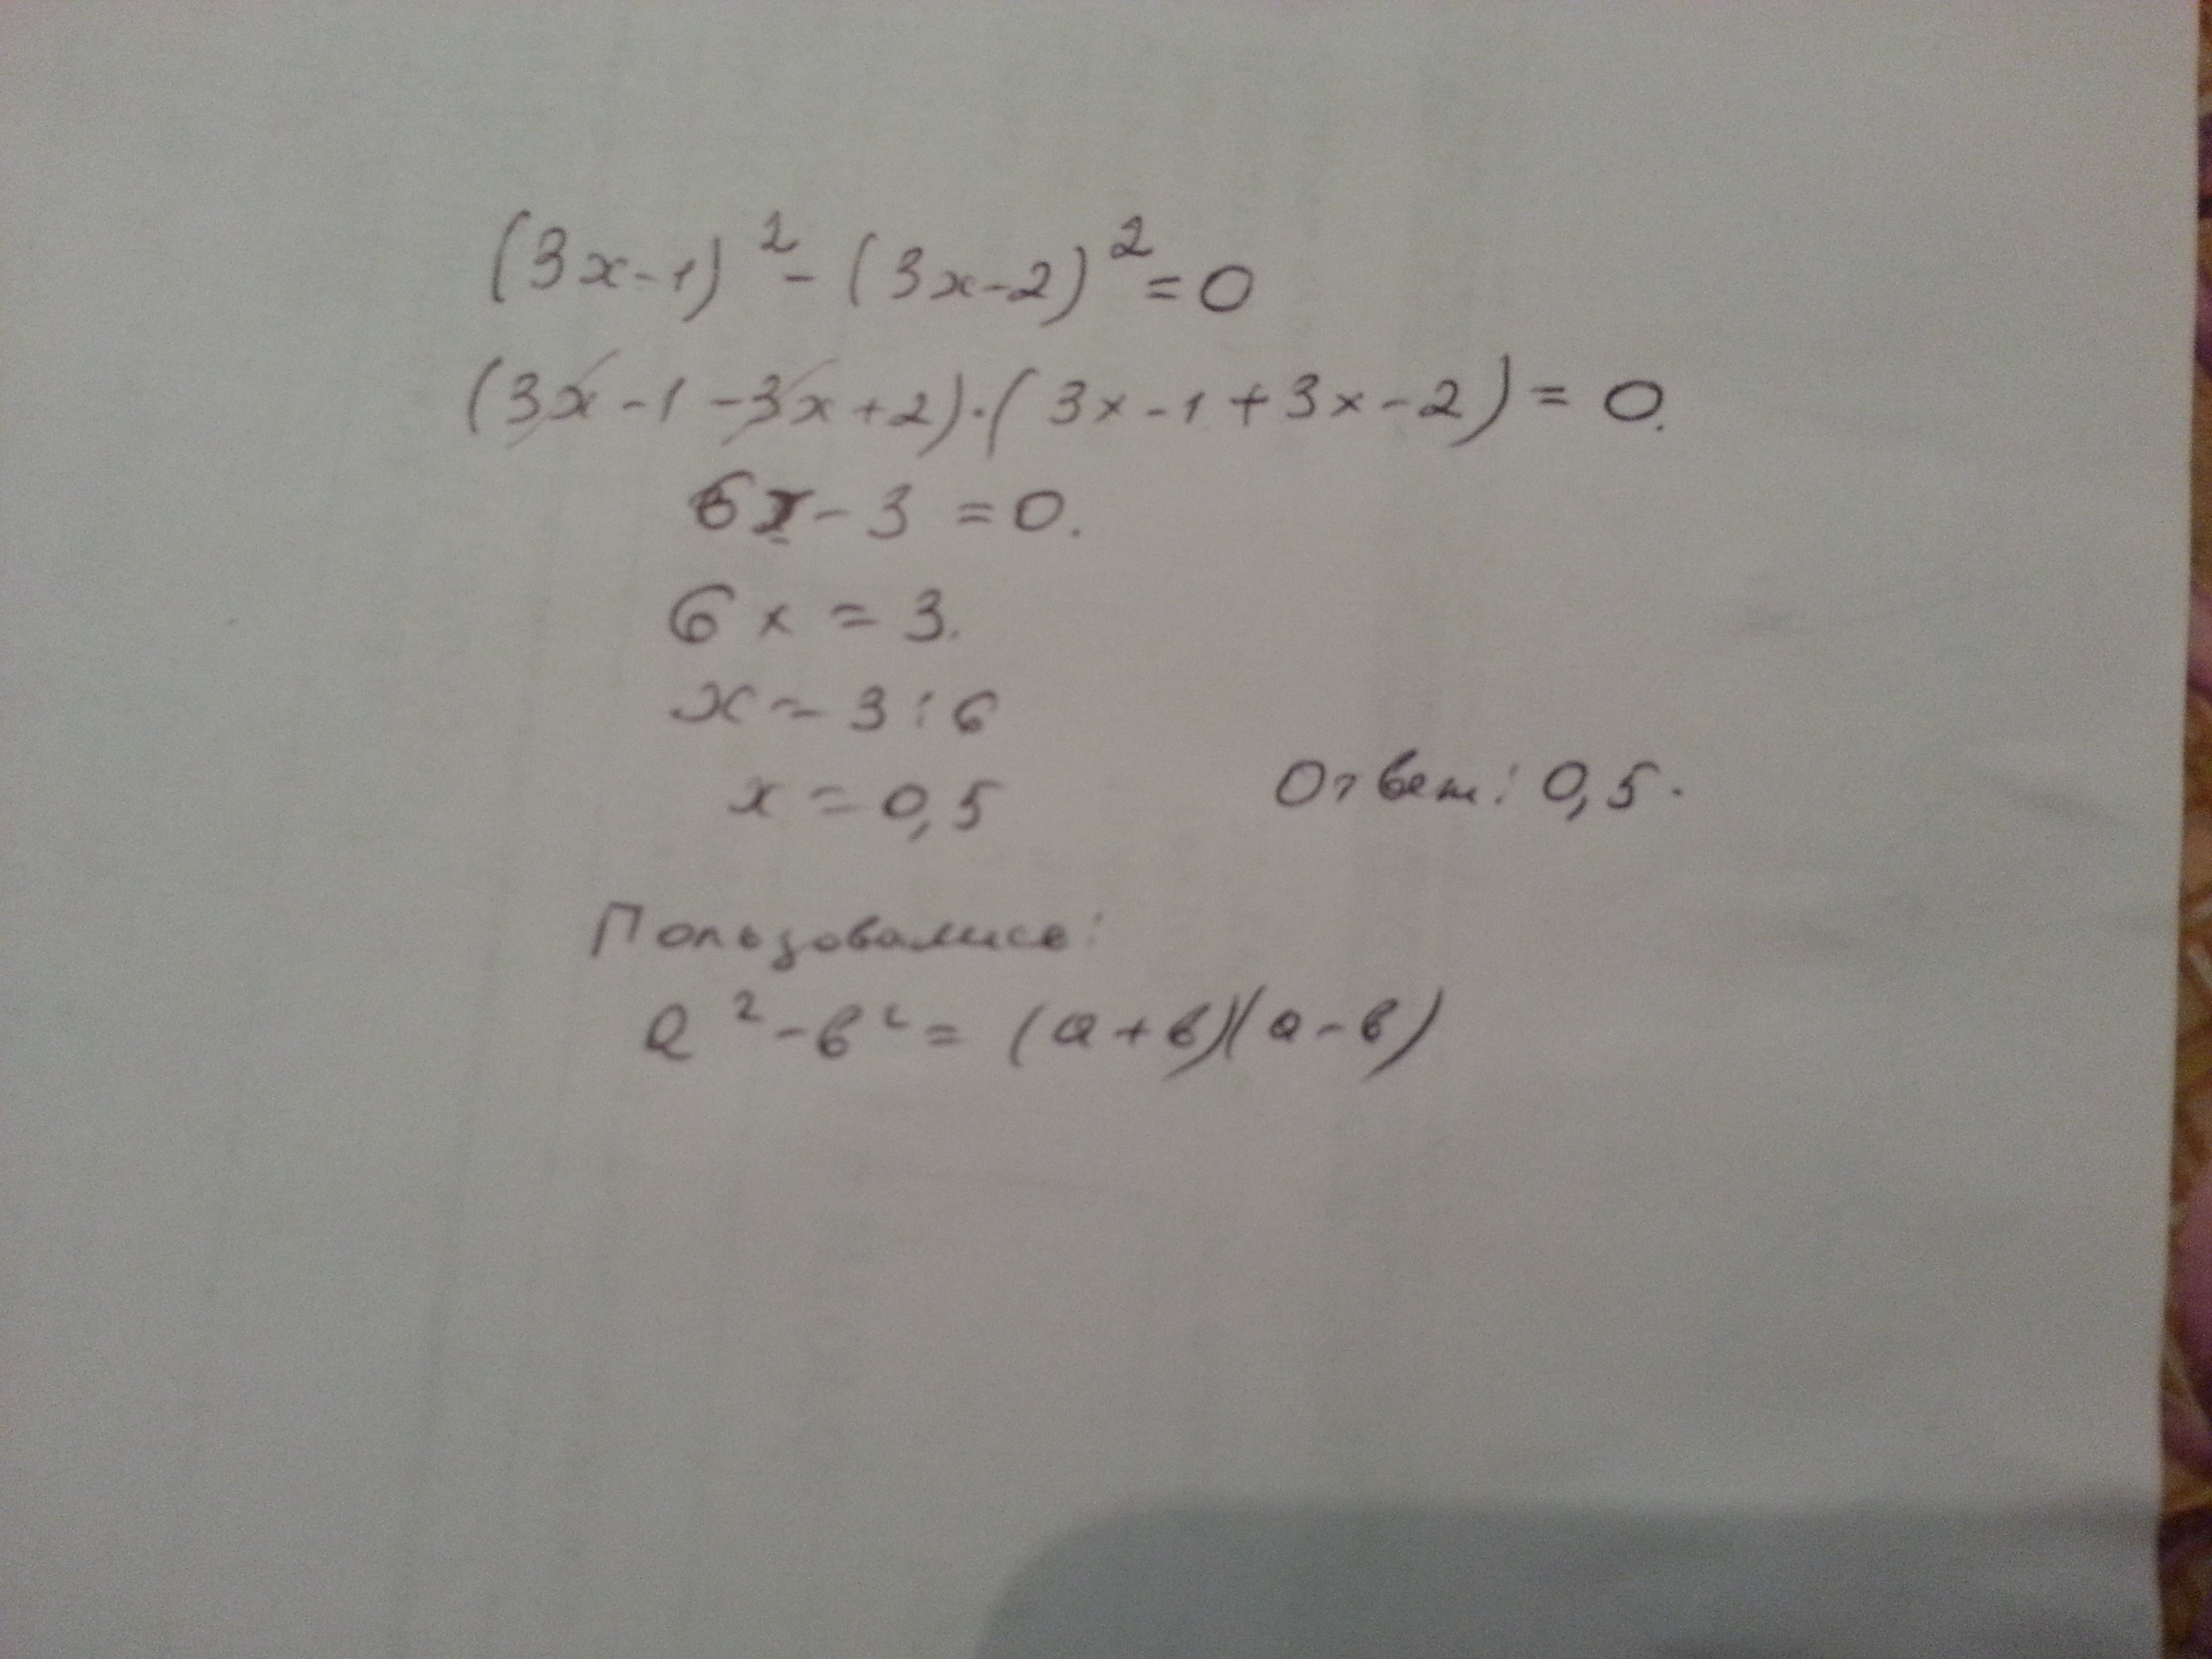 (3x-1)² - (3x-2)² = 0
(3x - 1 - 3x + 2) · (3x - 1 + 3x - 2) = 0.
6x - 3 = 0.
6x = 3.
x = 3 : 6
x = 0,5 Ответ: 0,5.
Пользовались:
a² - в² = (a + в)(a - в)